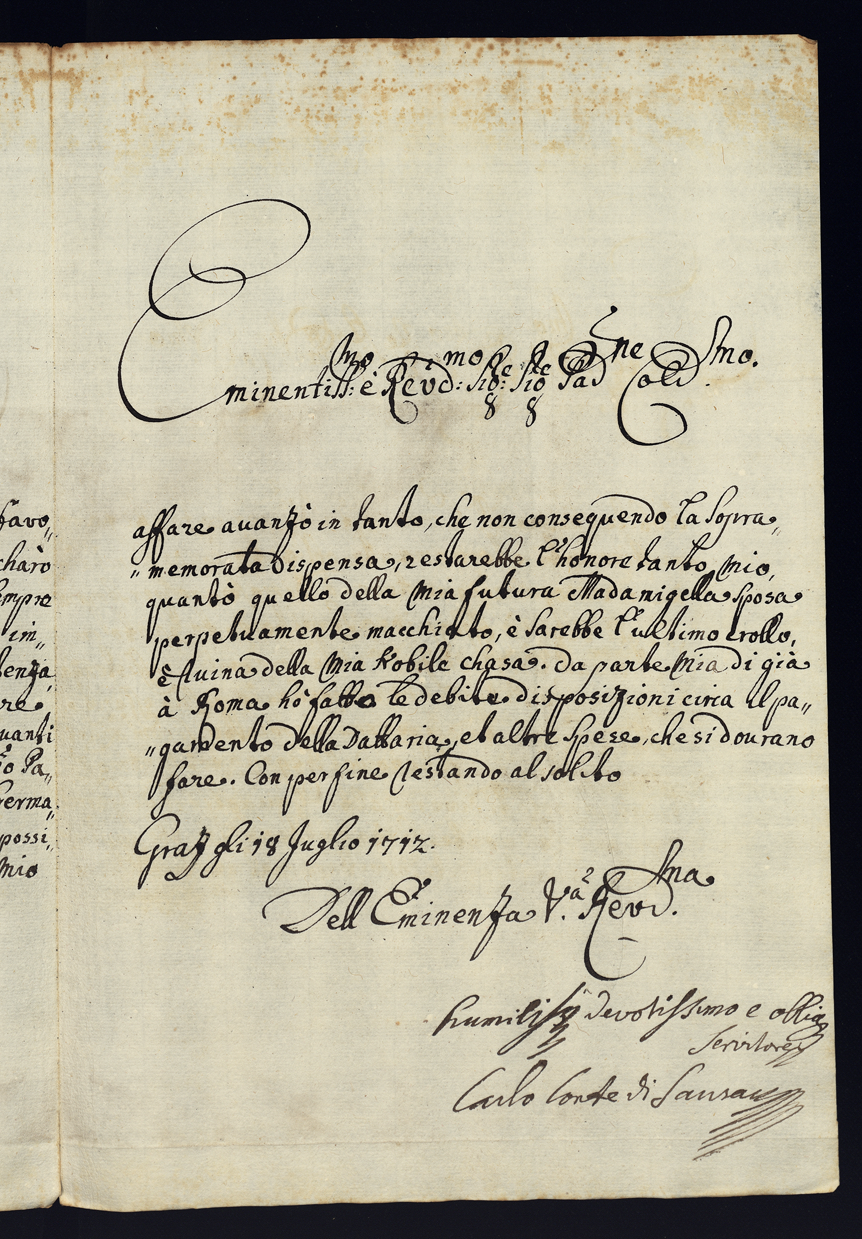 Eminentiss:mo è Revd:mo Sig:re Sig:re Pad:ne Coll:mo.
affare auanzò in tanto, che non consequendo la Sopra„
„memorata Dispensa, restarebbe l'honore tanto mio,
quantò quello della mia futura Madamigella Sposa
perpetuamente macchiato, è Sarebbe l'ultimo crollo,
è ruina della mia Nobile chasa. Da parte mia di già
à Roma hò fatto le debite disposizioni circa il pa„
„gamento della Dattaria, et altre Spese, che si dourano
fare. Con per fine restando al solito
Graz gli 18 Juglio 1712.
Dell Eminenza V.ra Revd.ma
humiliss devotissimo e obblig
Servitore
Carlo Conte di
favo„
charò
empre
im„
denza
re
uanti
Pa„
erma„
possi„
mio